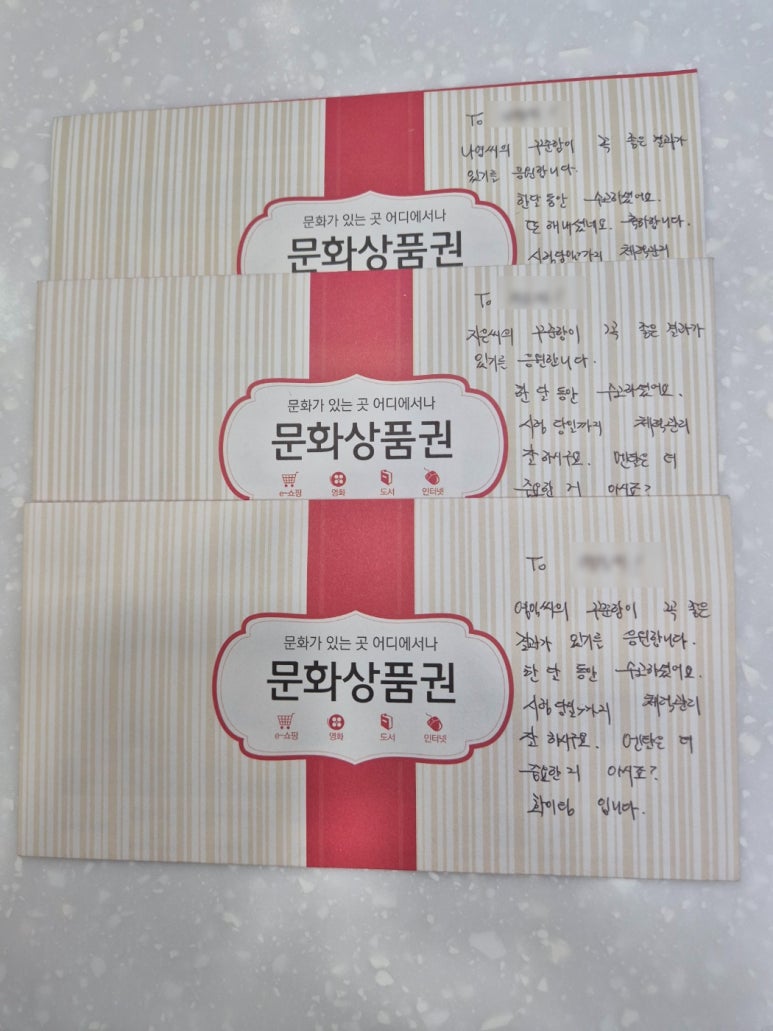 To
나영씨의 꾸준함이 꼭 좋은 결과가
있기를 응원합니다.
한달 동안 수고하셨어요.
또 해내셨네요. 축하합니다.
시험당일까지 체력관리
문화가 있는 곳 어디에서나
문화상품권
To
지은씨의 꾸준함이 꼭 좋은 결과가
있기를 응원합니다.
한 달 동안 수고하셨어요.
시험 당일까지 체력관리
잘 하시구요. 멘탈은 더
중요한 거 아시죠?
문화가 있는 곳 어디에서나
문화상품권
e-쇼핑 영화 도서 인터넷
To
꾸준함이 꼭 좋은
결과가 있기를 응원합니다.
한 달 동안 수고하셨어요.
시험 당일까지 체력관리
잘 하시구요. 멘탈은 더
중요한 거 아시죠?
화이팅 입니다.
문화가 있는 곳 어디에서나
문화상품권
e-쇼핑 영화 도서 인터넷